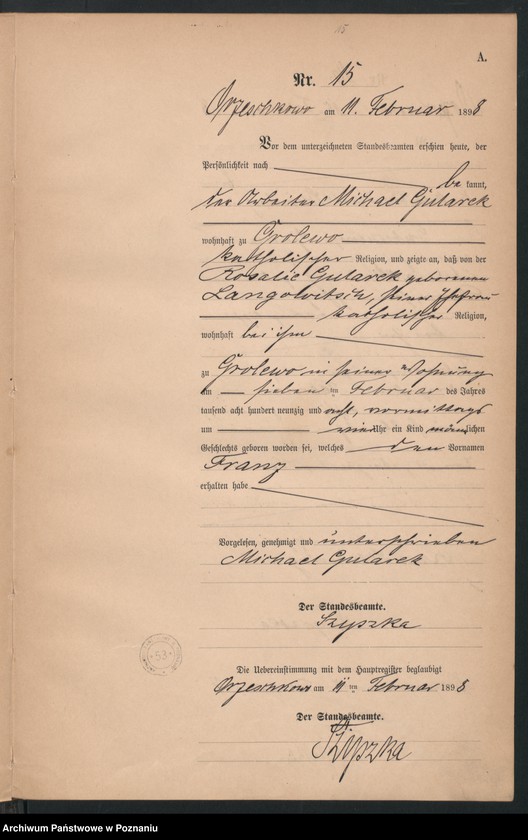 115
A.
Nr. 15
Orzeschkowo am 11. Februar 1898
Vor dem unterzeichneten Standesbeamten erschien heute, der
Persönlichkeit nach
bekannt,
der Arbeiter Michael Gutarek
wohnhaft zu Grolewo
katholischer Religion, und zeigte an, daß von der
Rosalie Gutarek geborenen
Langowitsch, seiner Ehefrau
katholischer Religion,
wohnhaft bei ihm
zu Grolewo in seiner Wohnung
am sieben ten Februar des Jahres
tausend acht hundert neunzig und acht, vormittags
um vier Uhr ein Kind männlichen
Geschlechts geboren worden sei, welches den Vornamen
Franz
erhalten habe
Vorgelesen, genehmigt und unterschrieben
Michael Gutarek
Der Standesbeamte.
Szyszka
53
Die Uebereinstimmung mit dem Hauptregister beglaubigt
Orzeschkowo am 11 ten Februar 1898
Der Standesbeamte.
Szyszka
Archiwum Państwowe w Poznaniu